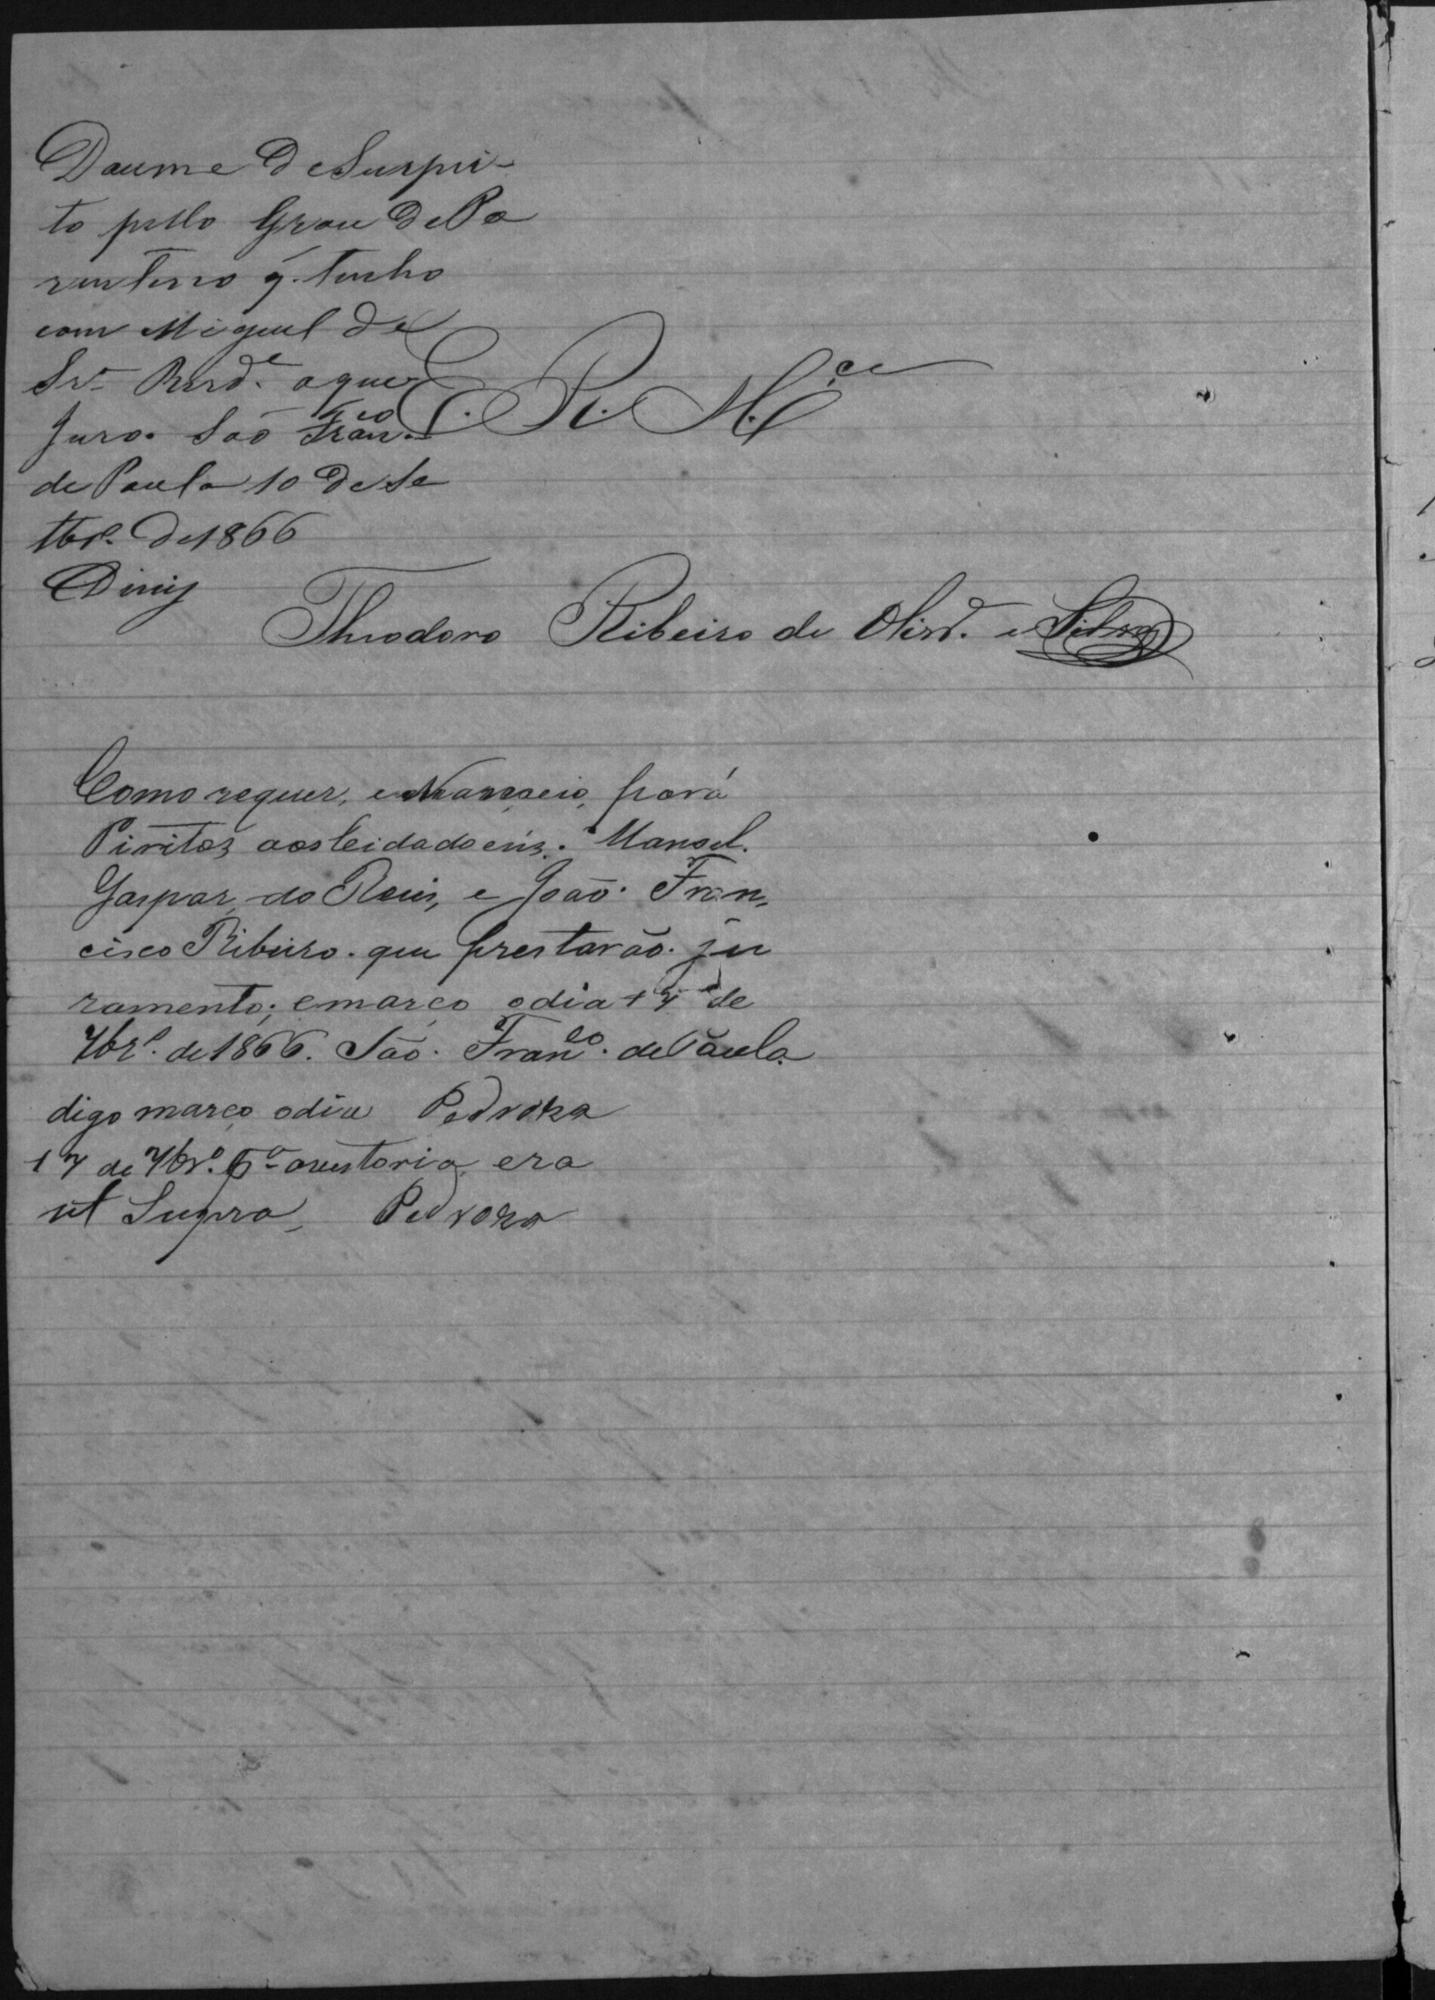 Doume de Suspei-
to pello Grau de Pa
rentesco q. tenho
com Miguel de
Srª Rezdᵉ. o que
Juro. São Franᶜᵒ.
de Paula 10 de Se
tbrº. de 1866
Diniz
E. R. Mᶜᵉ
Theodoro Ribeiro de Olivrª. e Silva
Como requer, e Nomeio, pará
Piritos aos Cidadoens. Manoel.
Gaspar, do Reis, e João. Fran,
cisco Ribeiro. que prestarão. ju
ramento; e marco o dia 17 de
7brº. de 1866. São. Franᶜᵒ. de Paula
digo março o dia Pedroza
17 de 7brº. pª avestoria, era
ut Supra, Pedroza